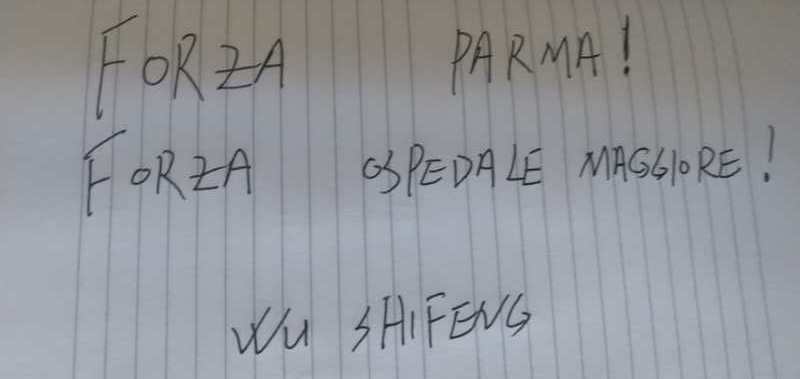 FORZA PARMA!
FORZA OSPEDALE MAGGIORE!
WU SHIFENG